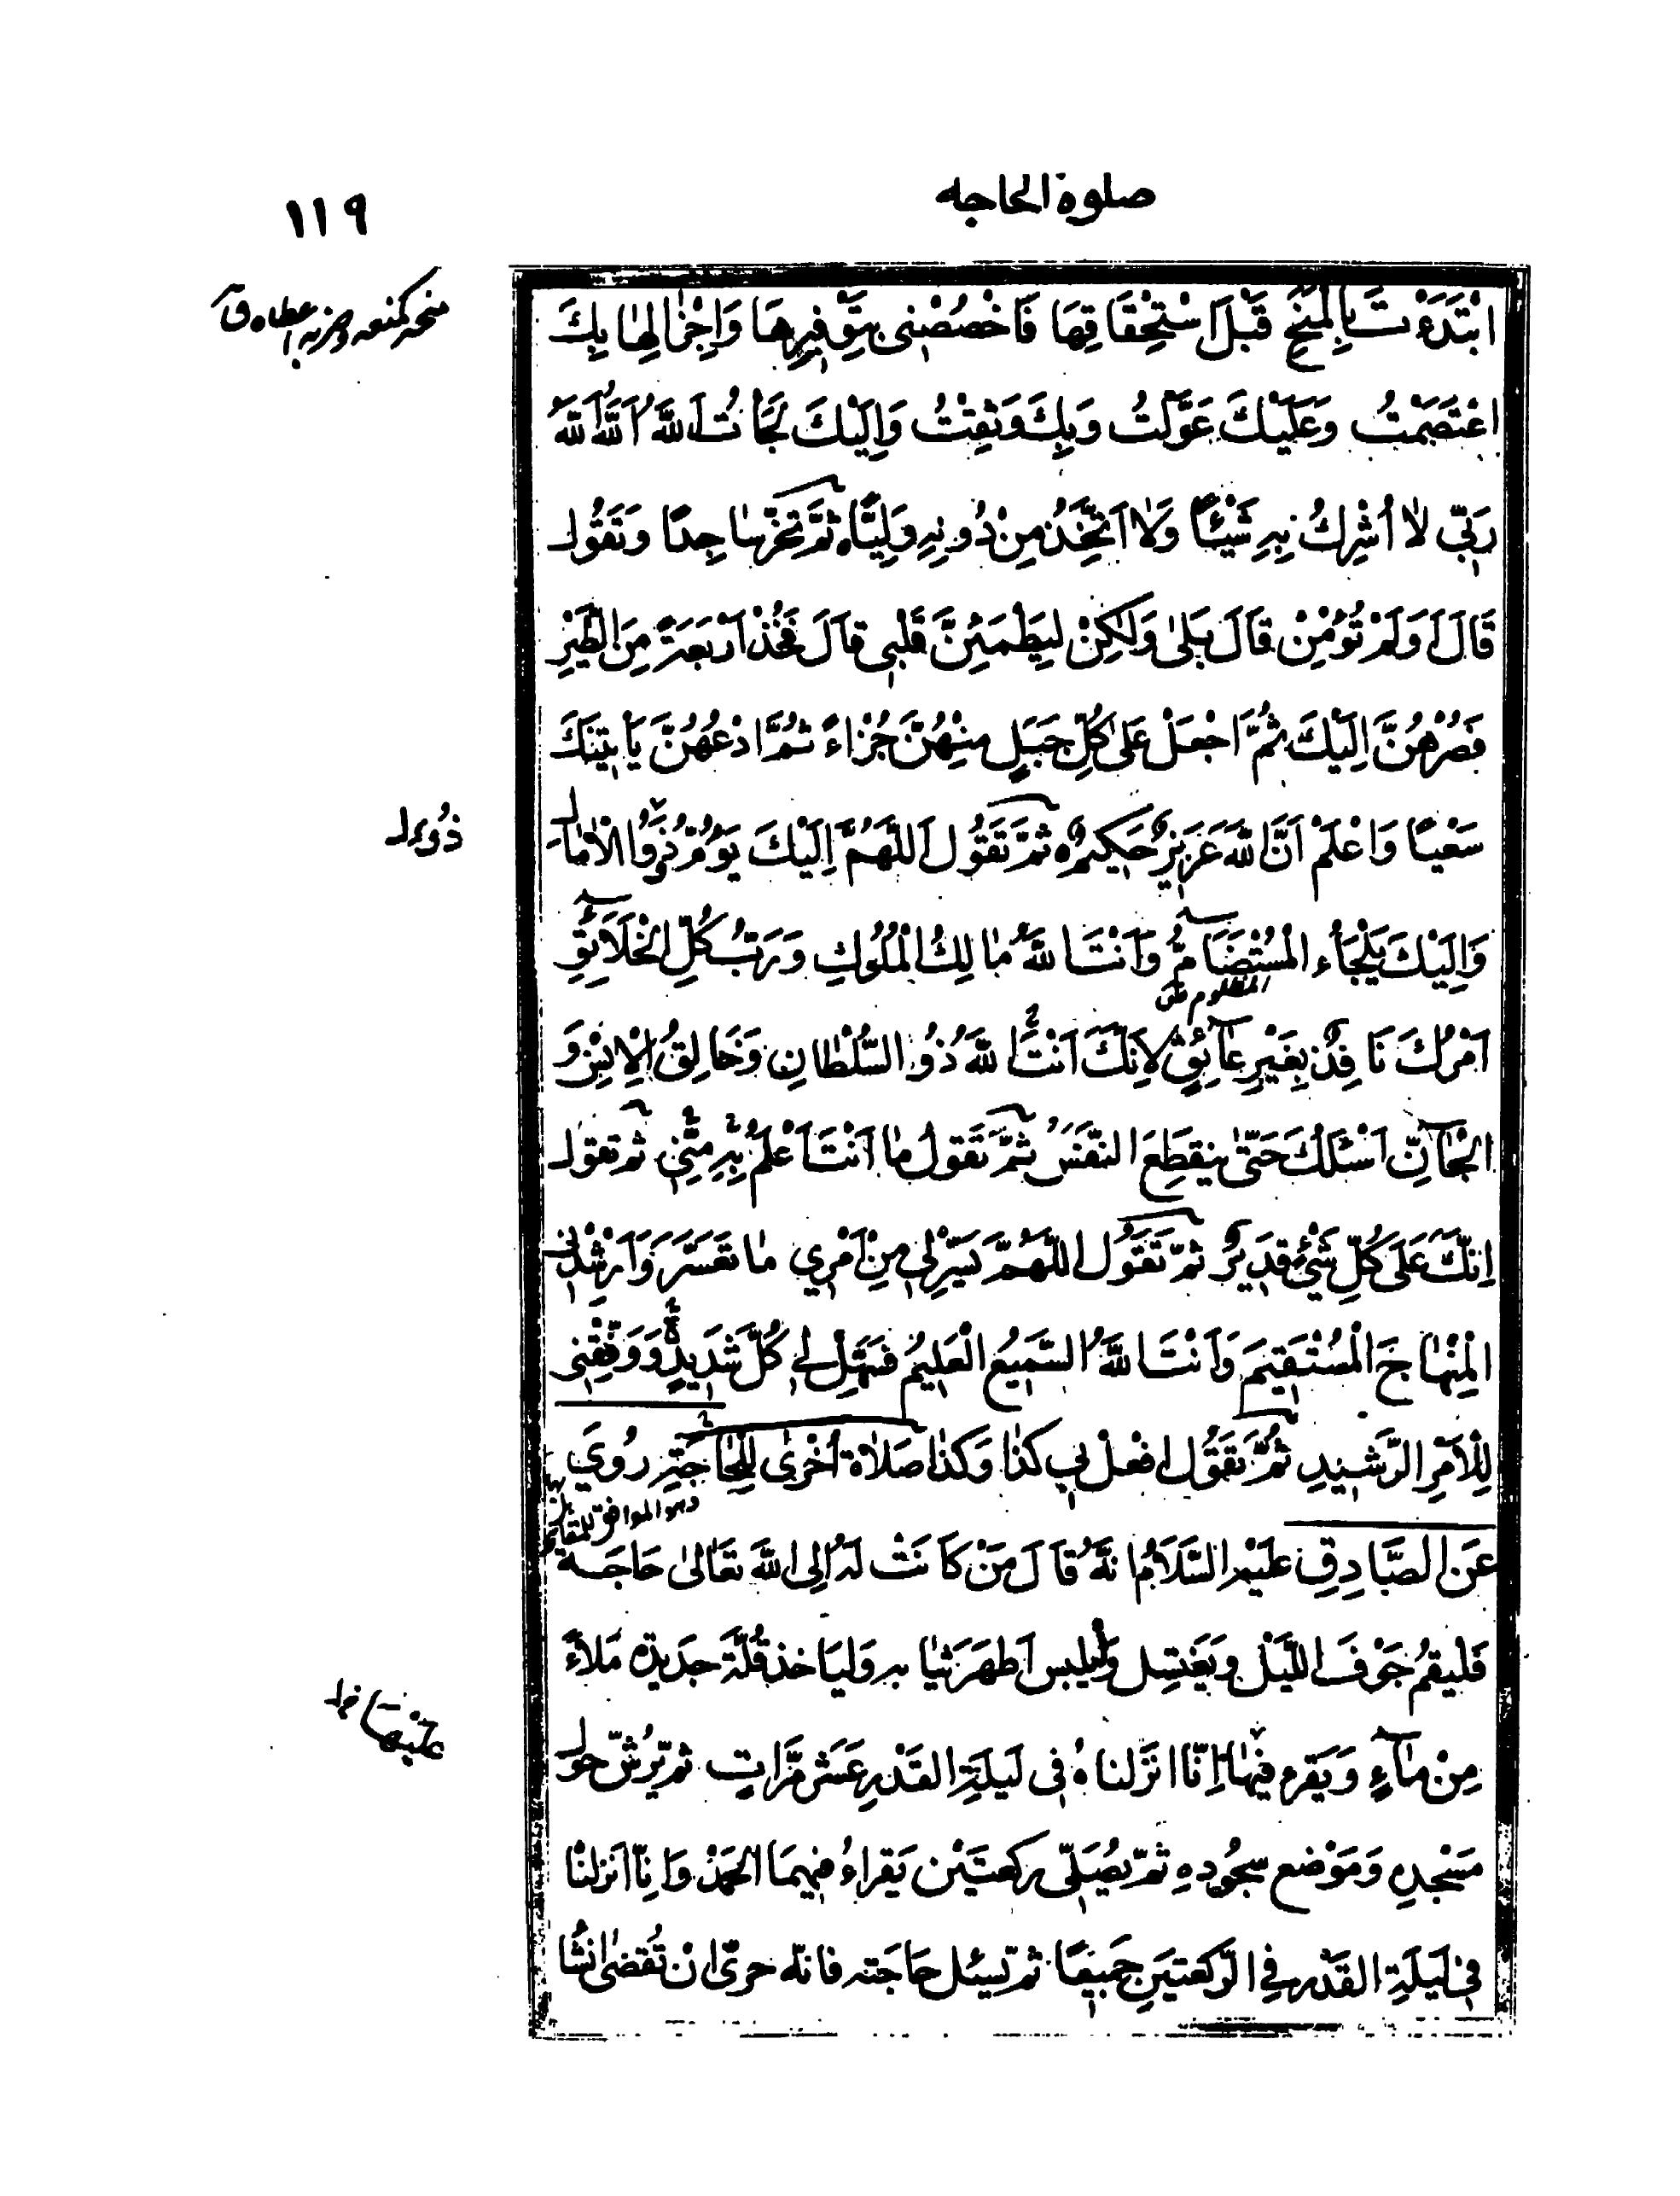 صلوة الحاجه
١١٩
ابْتَدَءْتَ بِالْمِنَحِ قَبْلَ اسْتِحْقَاقِهَا فَاخْصُصْنِى بِتَوْفِيرِهَا وَاِجْزٰالِهٰا بِكَ
منحه كمنعه وضربه اعطاه ق
اعْتَصَمْتُ وَعَلَيْكَ عَوَّلْتُ وَبِكَ وَثِقْتُ وَاِلَيْكَ لَجَأْتُ اَللّٰهُ اَللّٰهُ اَللّٰهُ
رَبّى لٰا اُشْرِكُ بِهِ شَيْئًا وَلٰا اَتَّخِذُ مِنْ دُونِهِ وَلِيًّا ثُمَّ تَخِرُّ سٰاجِدًا وَتَقُولُ
قَالَ اَوَلَمْ تُؤْمِنْ قَالَ بَلىٰ وَلٰكِنْ لِيَطْمَئِنَّ قَلْبِى قَالَ فَخُذْ اَرْبَعَةً مِنَ الطَّيْرِ
فَصُرْهُنَّ اِلَيْكَ ثُمَّ اجْعَلْ عَلىٰ كُلِّ جَبَلٍ مِنْهُنَّ جُزْاءً ثُمَّ ادْعُهُنَّ يَأْتِينَكَ
سَعْيًا وَاعْلَمْ اَنَّ اللّٰهَ عَزِيزٌ حَكِيمٌ ثُمَّ تَقُولُ اَللّٰهُمَّ اِلَيْكَ يَؤُمُّ ذَوُوا الْاٰمٰالِ
ذُوُوا
وَاِلَيْكَ يَلْجَأُ الْمُسْتَضَامُّ وَاَنْتَ اللّٰهُ مٰالِكُ الْمُلُوكِ وَرَبُّ كُلِّ الْخَلَآئِقِ
المظلوم
اَمْرُكَ نَافِذٌ بِغَيْرِ عَآئِقٍ لِاَنَّكَ اَنْتَ اللّٰهُ ذُو السُّلْطٰانِ وَخَالِقُ الْاِنْسِ وَ
الْجٰآنِّ اَسْئَلُكَ حَتّىٰ يَنْقَطِعَ النَّفَسُ ثُمَّ تَقُولُ مٰا اَنْتَ اَعْلَمُ بِهِ مِنِّى ثم تقول
اِنَّكَ عَلىٰ كُلِّ شَيْءٍ قَدِيرٌ ثُمَّ تَقُولُ اَللّٰهُمَّ يَسِّرْ لِى مِنْ اَمْرِى مٰا تَعَسَّرَ وَاَرْشِدْنِى
الْمِنْهٰاجَ الْمُسْتَقِيمَ وَاَنْتَ اللّٰهُ السَّمِيعُ الْعَلِيمُ فَسَهِّلْ لِى كُلَّ شَدِيدٍ وَوَفِّقْنِى
لِلْاَمْرِ الرَّشِيدِ ثُمَّ تَقُولُ افْعَلْ بِى كَذٰا وَكَذٰا صَلٰاةٌ اُخْرىٰ لِلْحٰاجَةِ رُوِىَ
وهو الموافق للمقام
عَنِ الصَّادِقِ عَلَيْهِ السَّلَامُ اَنَّهُ قَالَ مَنْ كَانَتْ لَهُ اِلَى اللّٰهِ تَعَالىٰ حَاجَةٌ
فَلْيَقُمْ جَوْفَ اللَّيْلِ وَيَغْتَسِلْ وَلْيَلْبَسْ اَطْهَرَ ثِيٰابِهِ وَلْيَاخذ قُلَّةً جَدِيدَةً مَلْاءً
مِنْ مٰآءٍ وَيَقرءُ فِيهٰا اِنّٰا اَنْزَلْنٰاهُ فِى لَيْلَةِ القَدْرِ عَشَرَ مَرَّاتٍ ثم يَرُشُّ حول
عليها خل
مَسْجِدِهِ وَمَوْضِعِ سُجُودِهِ ثمّ يُصَلّى ركعتَيْن يَقراءُ فِيهِمَا الحَمْدَ وَاِنّٰا اَنزلنٰا
فِى لَيلَةِ القَدْرِ فِى الرَّكعَتَيْنِ جَمِيعًا ثم يَسئل حَاجَته فانّه حرىٌّ ان تُقضىٰ انشا